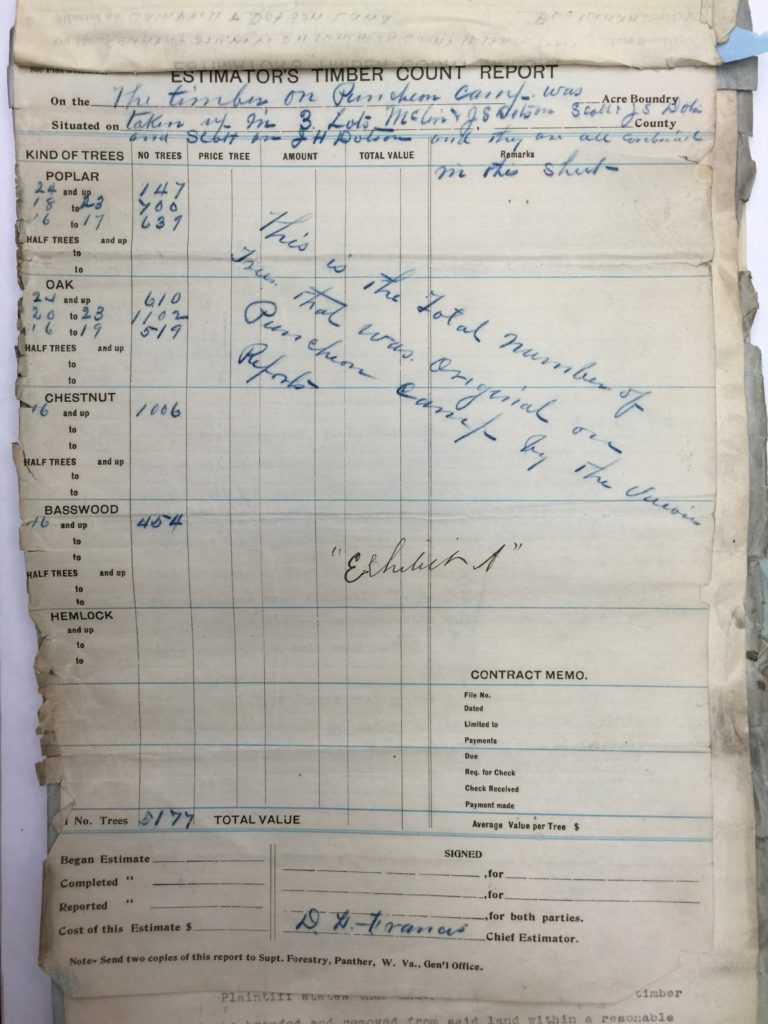 Situated on Campbell & Dotson Land Buchanan County
Acre Boundry
ESTIMATOR'S TIMBER COUNT REPORT
On the The timber on Puncheon Camp was Acre Boundry
Situated on taken up in 3 Lots J S Dotson Scott & J S County
and Scott J H Dotson and they are all combined
KIND OF TREES NO TREES PRICE TREE AMOUNT TOTAL VALUE Remarks
in this sheet
POPLAR
24 and up 147
18 to 23 700
16 to 17 639
HALF TREES and up
to
to
This is the Total number of
Trees that was original on
Puncheon Camp by the
Reports
OAK
24 and up 610
20 to 23 1102
16 to 19 519
HALF TREES and up
to
to
CHESTNUT
16 and up 1006
to
to
HALF TREES and up
to
to
BASSWOOD
16 and up 454
to
to
HALF TREES and up
to
to
"Exhibit A"
HEMLOCK
and up
to
to
CONTRACT MEMO.
File No.
Dated
Limited to
Payments
Due
Req. for Check
Check Received
Payment made
No. Trees 5177 TOTAL VALUE Average Value per Tree $
Began Estimate SIGNED
,for
Completed "
,for
Reported "
,for both parties.
Cost of this Estimate $ D. G. Francis Chief Estimator.
Note- Send two copies of this report to Supt. Forestry, Panther, W. Va., Gen'l Office.
Plaintiff states timber
branded and removed from said land within a resonable